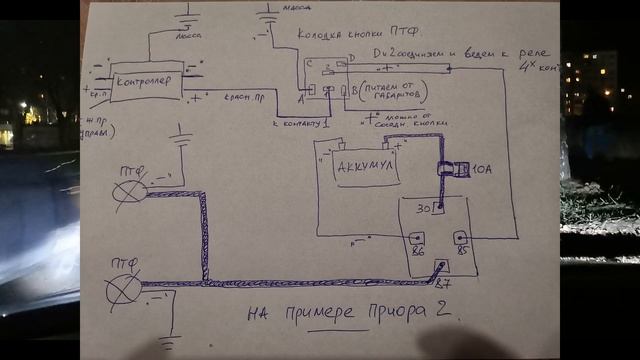 масса
масса
Колодка кнопки ПТФ.
"-"
"-"
C
D
D и 2 соединяем и ведем к реле
4х конт.
"+"
2
"-"
"-"
+ кр.п
Контроллер
"+"
красн.пр
A
1
B (питаем от
габаритов)
к контакту 1
"+" можно от
соседн. кнопки
ж.пр
управл)
"-"
"-"
"+"
Аккумул
10А
ПТФ
"-"
30
86
85
"-"
87
ПТФ
"-"
на примере Приора 2.